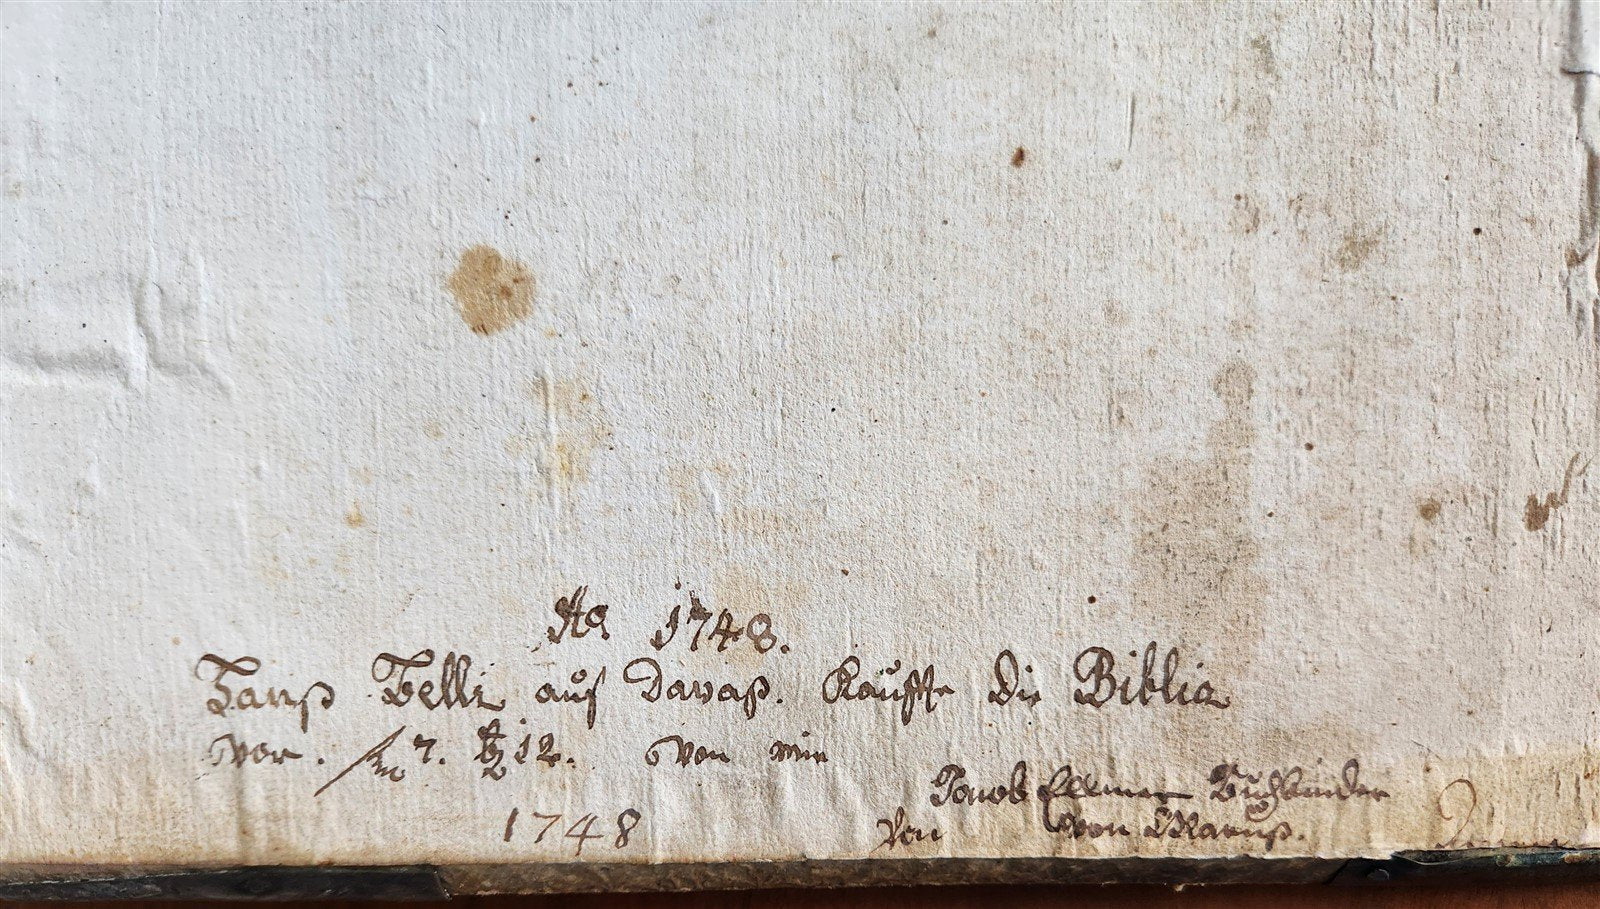 Aō 1748.
Hanß Belli auf Davaß. Kauffte die Biblia
vor. fl 7. xr 12. von mir
Jacob Buchbinder
1748 von von